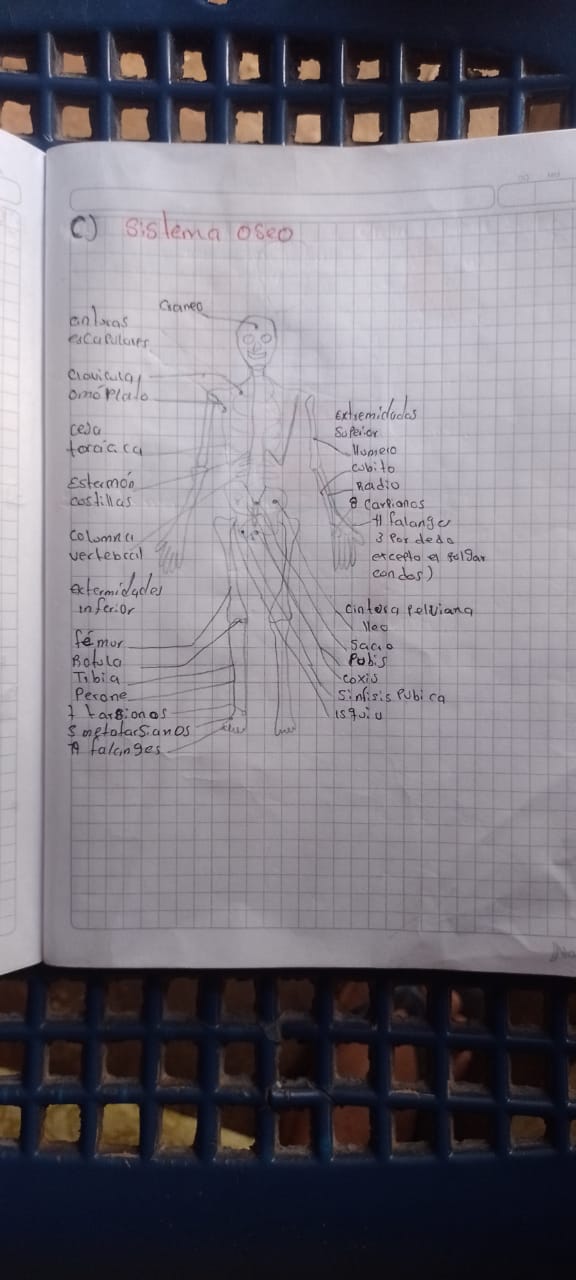 C) Sistema oseo
Craneo
cinturas
escapulares
Clavicula
omóplato
caja
toracica
Esternón
costillas
columna
vertebral
extermidades
inferior
fémur
Rotula
Tibia
Perone
7 tarsianos
5 metatarsianos
14 falanges
extremidades
Superior
Humero
cubito
Radio
8 Carpianos
14 falange
3 Por dedo
excepto el pulgar
con dos)
Cintura Pelviana
Ileo
Sacro
Pubis
coxis
Sinfisis Pubica
isquiu